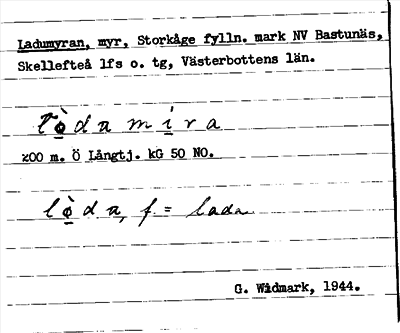 Ladumyran, myr, Storkåge fylln. mark NV Bastunäs,
Skellefteå lfs o. tg, Västerbottens län.
lø̀da mira
200 m. Ö Långtj. kG 50 NO.
lø̀da, f. = lada
G. Widmark, 1944.